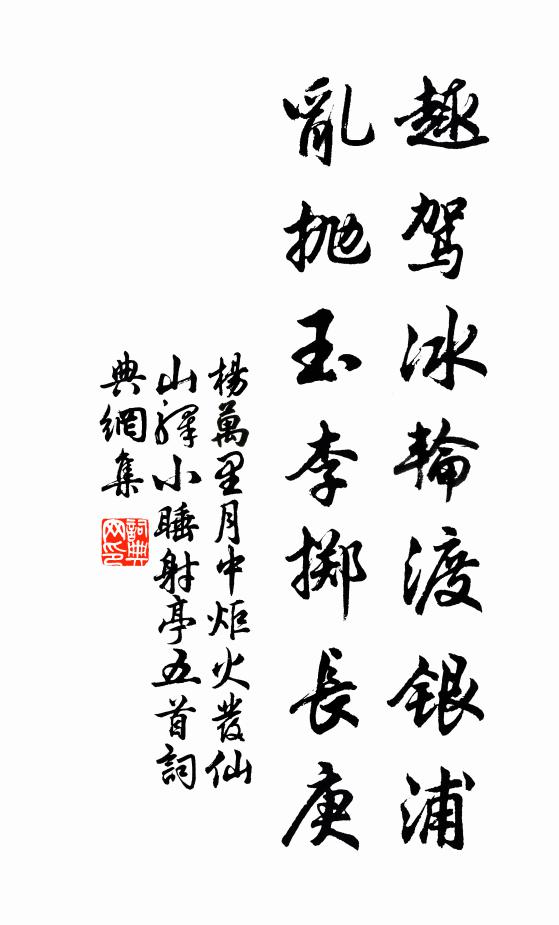 趣駕冰輪渡銀浦
亂拋玉李擲長庚
楊萬里月中炬火發仙
山驛小睡射亭五首詞
典網集
詞典
网印